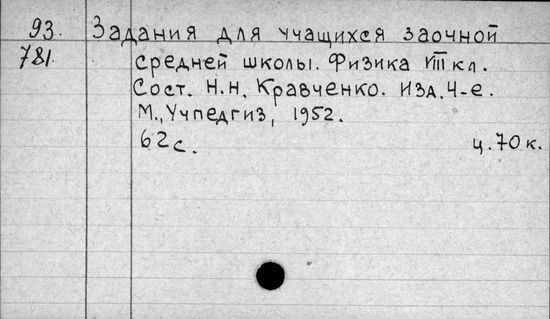 93. Задания для учащихся заочной
781. средней школы. Физика VIII кл.
Сост. Н.Н. Кравченко. Изд. 4-е.
М., Учпедгиз, 1952.
62 с. ц. 70 к.